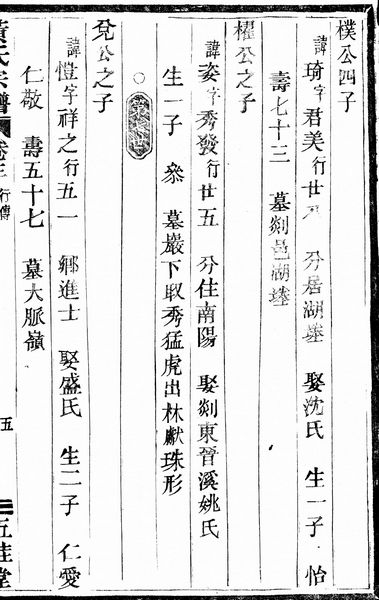 樸公四子
諱琦字君美行廿五 分居湖塍 娶沈氏 生一子 怡
壽七十三 墓剡邑湖塍
權公之子
諱姿字秀發行廿五 分住南陽 娶剡東晉溪姚氏
生一子 叅 墓巖下取秀猛虎出林獻珠形
兌公之子
諱愷字祥之行五一 鄉進士 娶盛氏 生二子 仁愛
仁敬 壽五十七 墓大脈嶺
黃氏宗譜 卷三 行傳 五 五桂堂